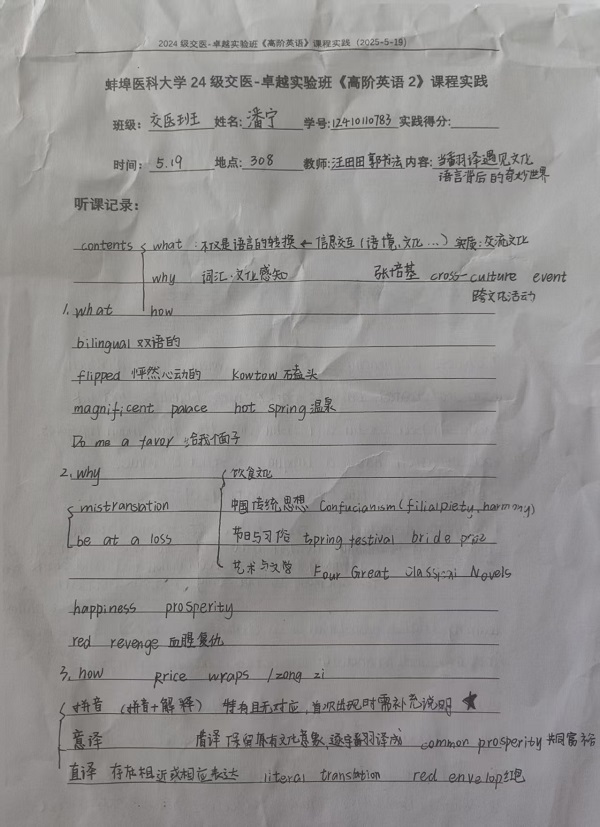 2024 级交医-卓越实验班《高阶英语》课程实践（2025-5-19）
蚌埠医科大学 24 级交医-卓越实验班《高阶英语 2》课程实践
班级: 交医班 姓名: 潘宁 学号: 12410110783 实践得分:
时间: 5.19 地点: 308 教师: 汪田田 郭书法 内容: 当翻译遇见文化
语言背后的奇妙世界
听课记录:
contents what : 不仅是语言的转换 ← 信息交互 (语境、文化...) 实质: 交流文化
why 词汇·文化感知 张培基 cross-culture event
1. what how 跨文化活动
bilingual 双语的
flipped 怦然心动的 kowtow 磕头
magnificent palace hot spring 温泉
Do me a favor 给我个面子
2. why 饮食文化
mistranslation 中国传统思想 Confucianism (filial piety, harmony)
be at a loss 节日与习俗 spring festival bride
艺术与文学 Four Great Classical Novels
happiness prosperity
red revenge 血腥复仇
3. how price wraps / zong zi
拼音 (拼音+解释) 特有且无对应, 首次出现时需补充说明 ★
意译 直译 保留 有文化意象, 逐字翻译成 common prosperity 共同富裕
直译 存在相近或相应表达 literal translation red envelop 红包